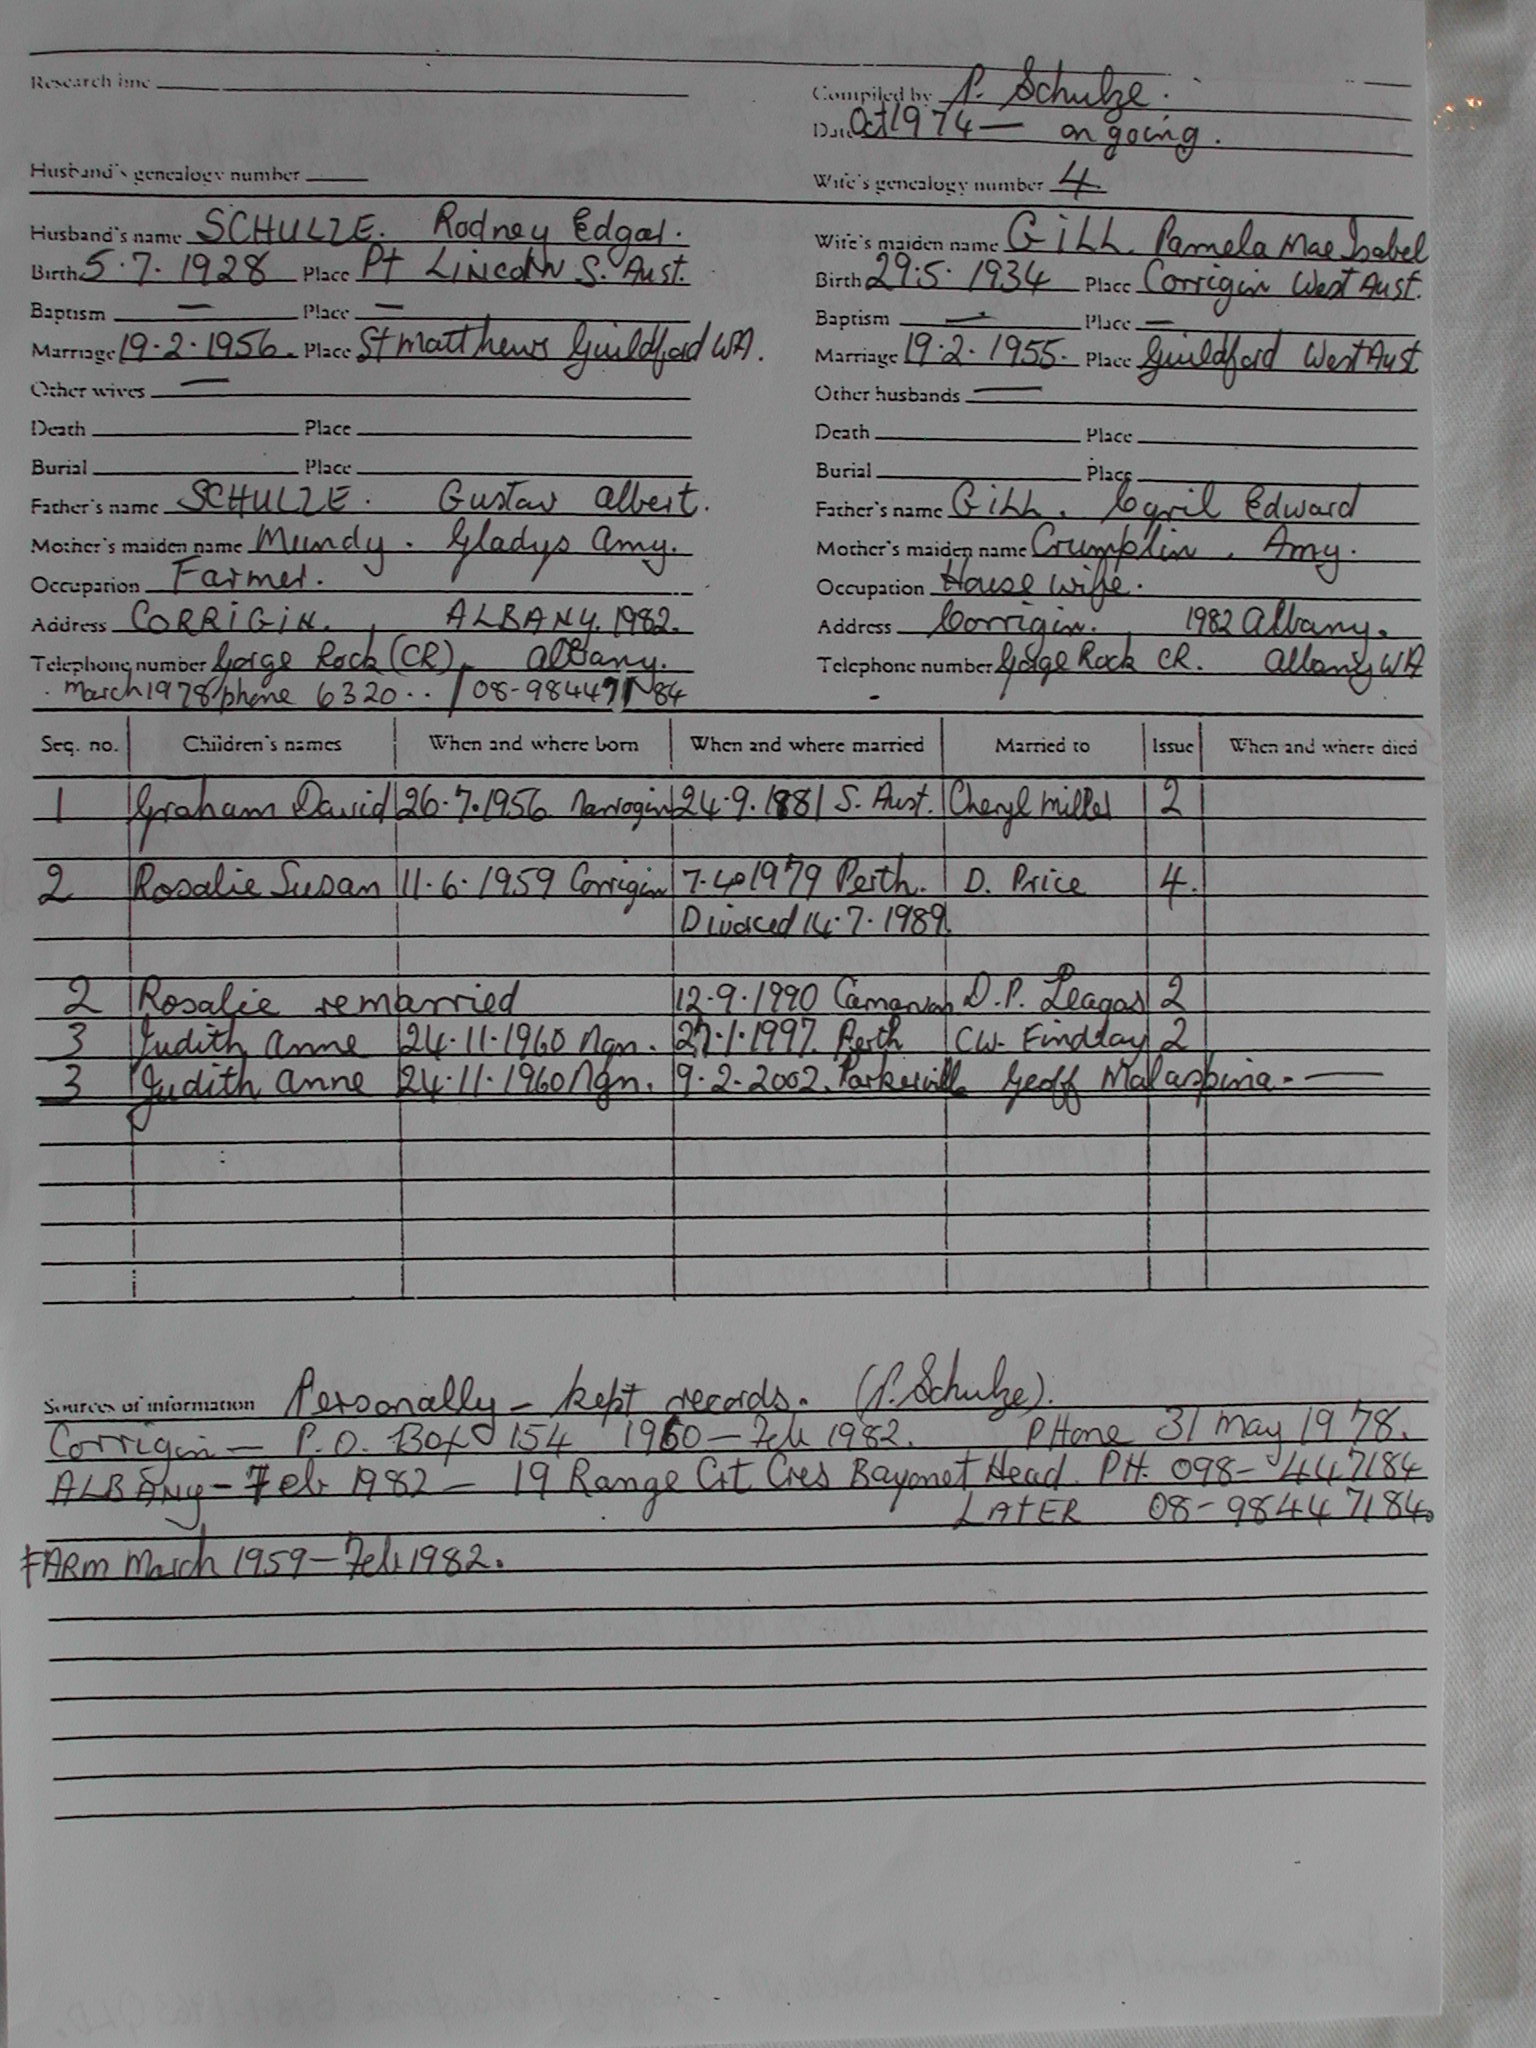 Research line
Compiled by P. Schulze.
Date Oct 1974 — on going.
Husband's genealogy number
Wife's genealogy number 4
Husband's name SCHULZE. Rodney Edgar.
Wife's maiden name GiLL. Pamela Mae Isabel
Birth 5.7.1928 Place Pt LINCOLN S. Aust.
Birth 29.5.1934 Place Corrigin West Aust.
Baptism — Place —
Baptism — Place —
Marriage 19.2.1956. Place St Matthews Guildford WA.
Marriage 19.2.1955. Place Guildford West Aust
Other wives —
Other husbands —
Death Place
Death Place
Burial Place
Burial Place
Father's name SCHULZE. Gustav Albert.
Father's name GiLL. Cyril Edward
Mother's maiden name Mundy. Gladys Amy.
Mother's maiden name Crumplin. Amy.
Occupation Farmer.
Occupation House wife.
Address CORRiGiN. , ALBANY. 1982.
Address Corrigin. , 1982 Albany.
Telephone number Gorge Rock (CR), Albany.
Telephone number Gorge Rock CR. Albany WA
March 1978/phone 6320.. / 08-98447184
Seq. no. Children's names When and where born When and where married Married to Issue When and where died
1 Graham David 26.7.1956 Narrogin 24.9.1881 S. Aust. Cheryl Miller 2
2 Rosalie Susan 11.6.1959 Corrigin 7.4.1979 Perth. D. Price 4.
Divorced 14.7.1989.
2 Rosalie remarried 12.9.1990 Carnarvon D.P. Leagas 2
3 Judith Anne 24.11.1960 Ngn. 27.1.1997. Perth CW. Findlay 2
3 Judith Anne 24.11.1960 Ngn. 9.2.2002. Parkerville Geoff Malaspina. —
Sources of information Personally – kept records. (P. Schulze).
Corrigin – P.O. Box 154 1960 – Feb 1982. PHone 31 May 1978.
ALBANY – Feb 1982 – 19 Range Crt Cres Bayonet Head. PH. 098-447184
LATER 08-98447184.
FARM March 1959 – Feb 1982.